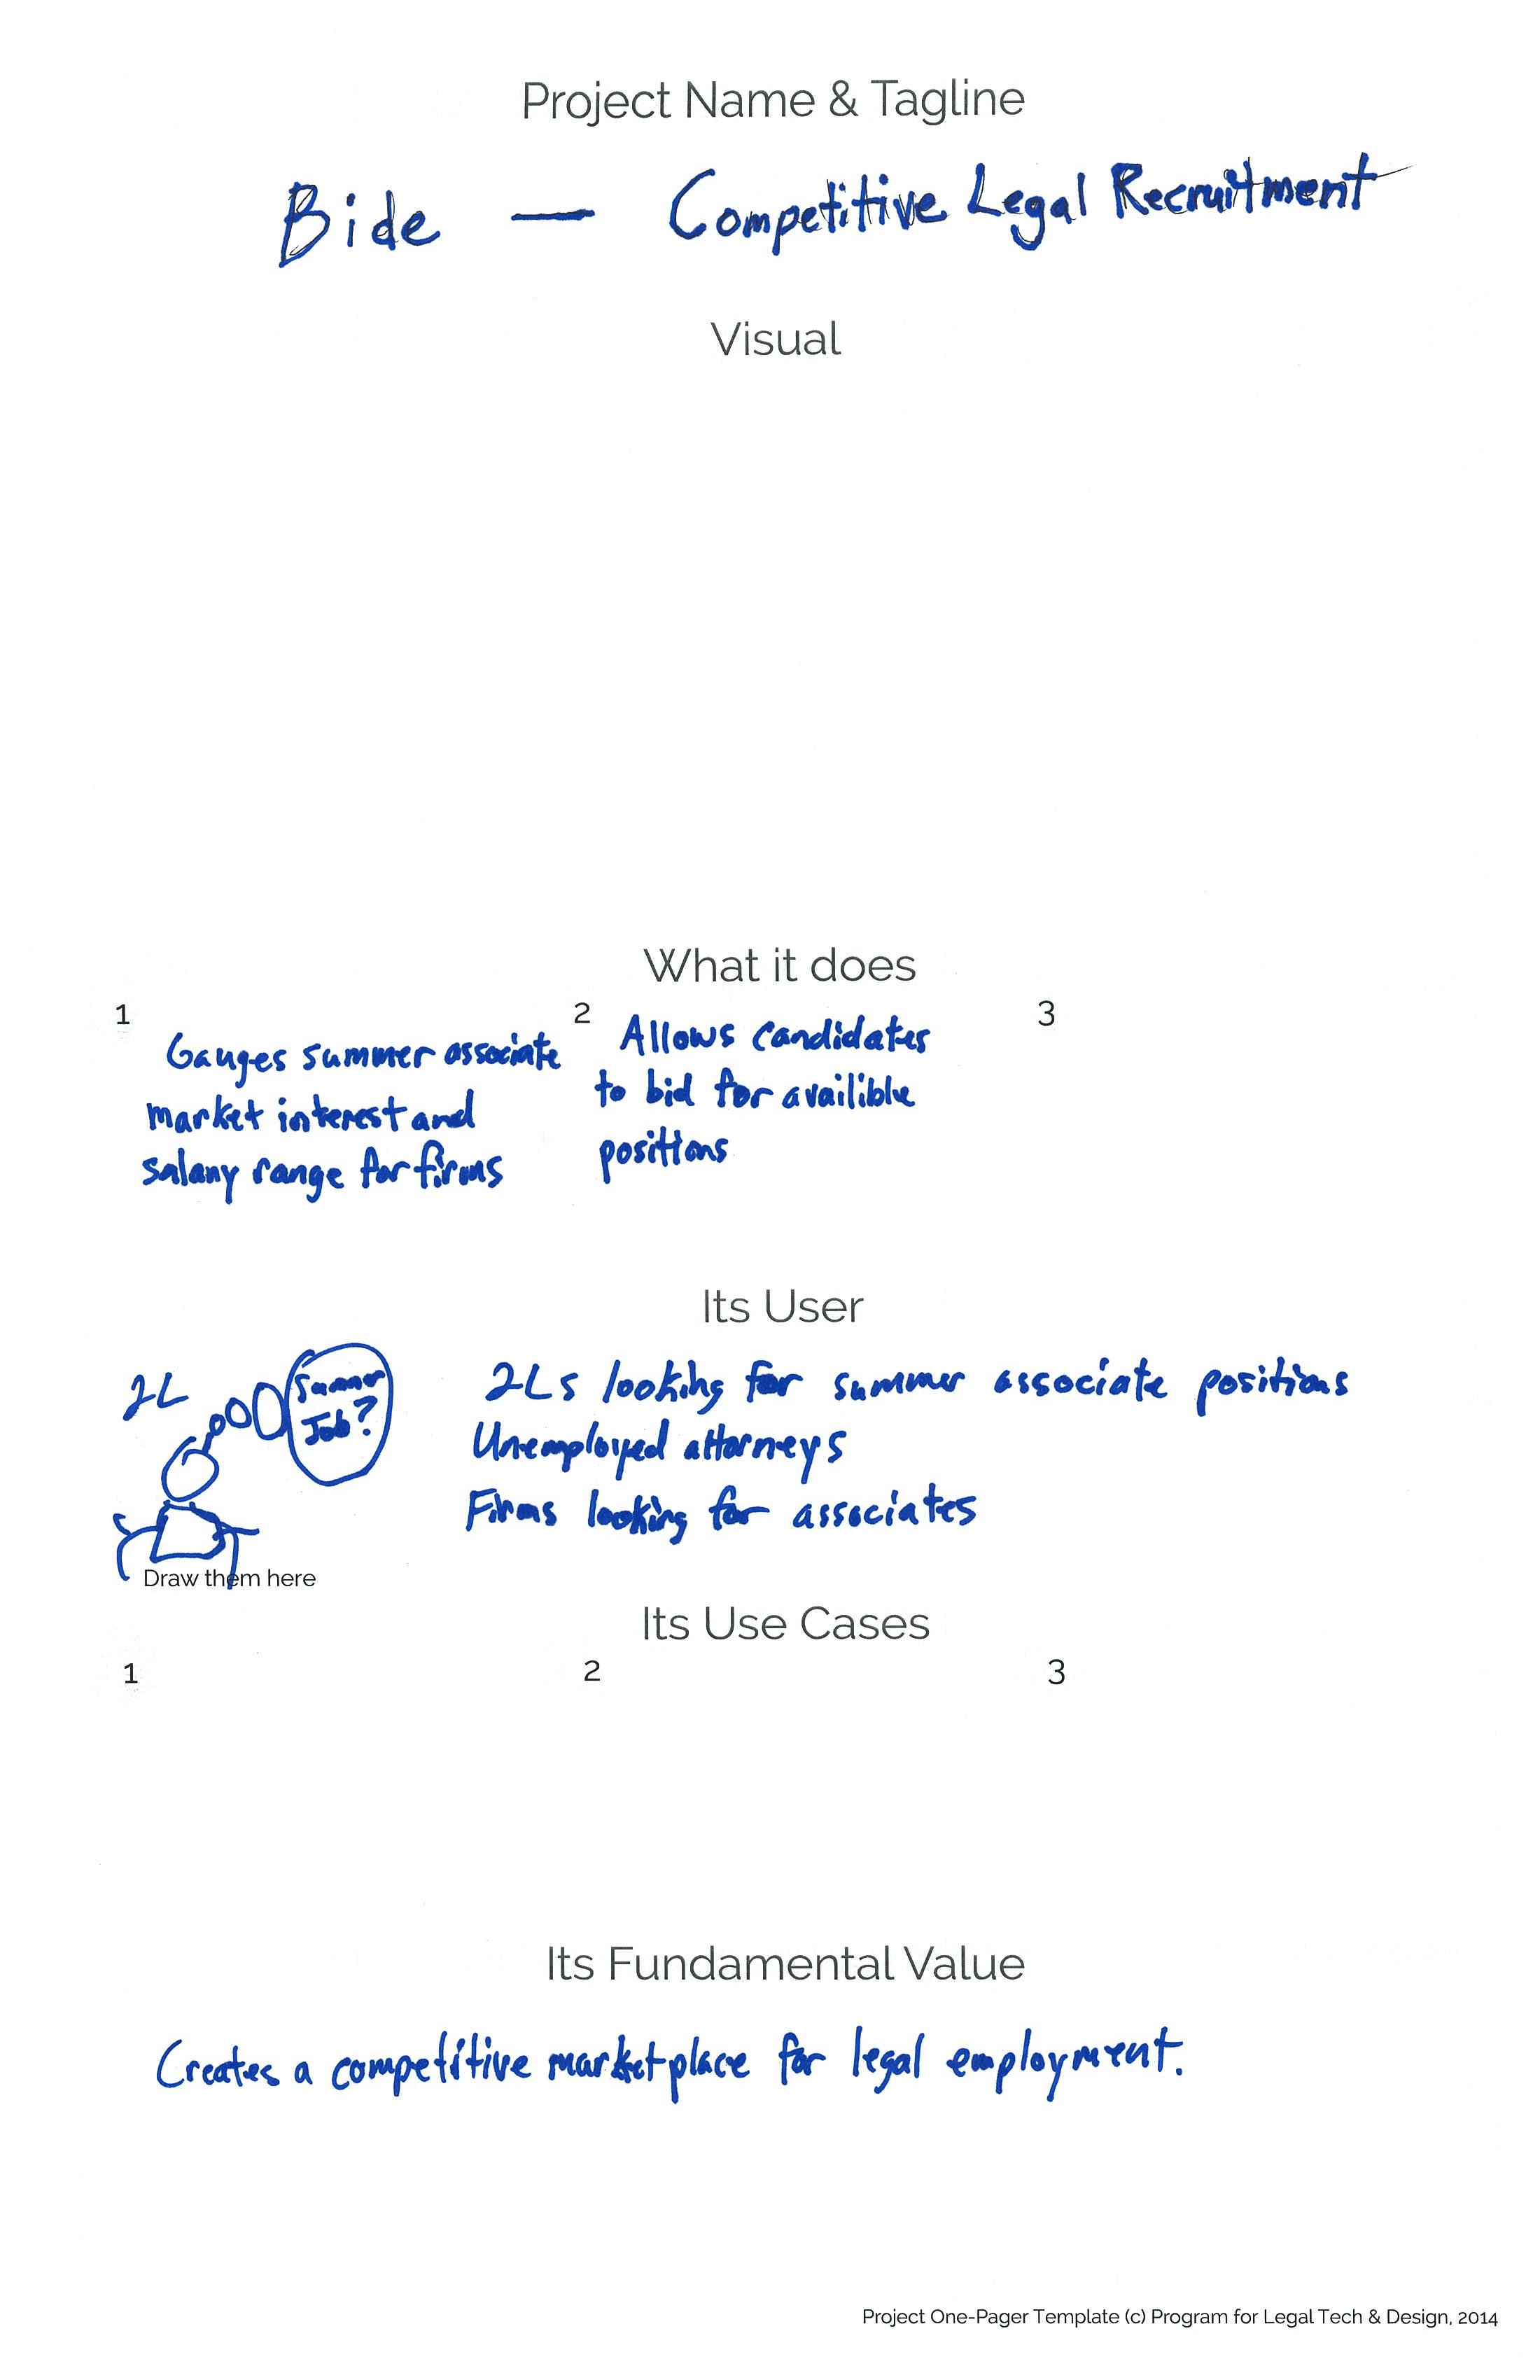 Project Name & Tagline
Bide — Competitive Legal Recruitment
Visual
What it does
1
Gauges summer associate
market interest and
salary range for firms
2
Allows candidates
to bid for availible
positions
3
Its User
2L
Summer
Job?
Draw them here
2Ls looking for summer associate positions
Unemployed attorneys
Firms looking for associates
Its Use Cases
1
2
3
Its Fundamental Value
Creates a competitive marketplace for legal employment.
Project One-Pager Template (c) Program for Legal Tech & Design, 2014